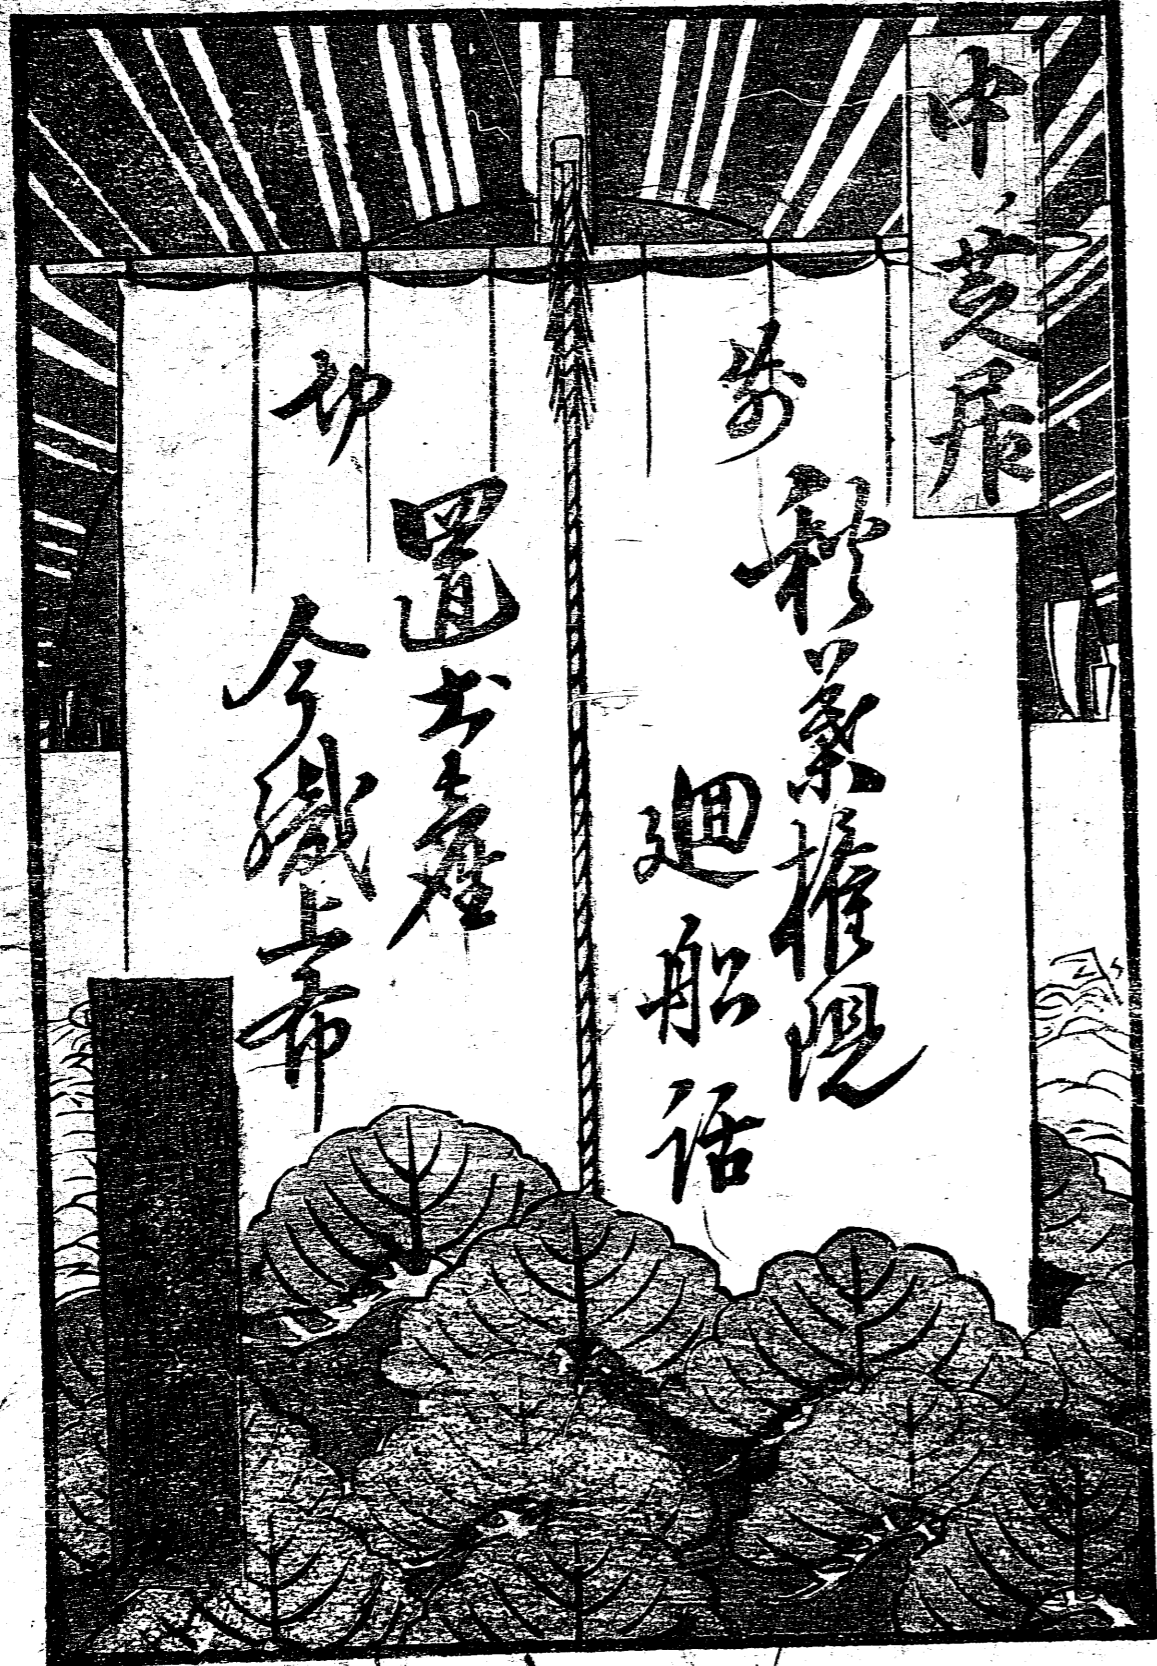 中ノ芝居
前
秋葉権現
廻船話
切
置土産
今織上布